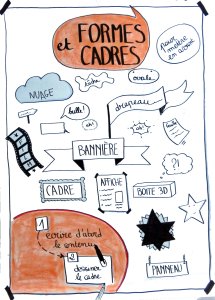 et FORMES
CADRES
pour mettre
en avant
NUAGE
ovale
bulle!
drapeau
ah!
oh!
BANNIÈRE
?!
CADRE
AFFICHE
BOITE 3D
1
écrire d'abord
le contenu
2
dessiner
le cadre
PANNEAU